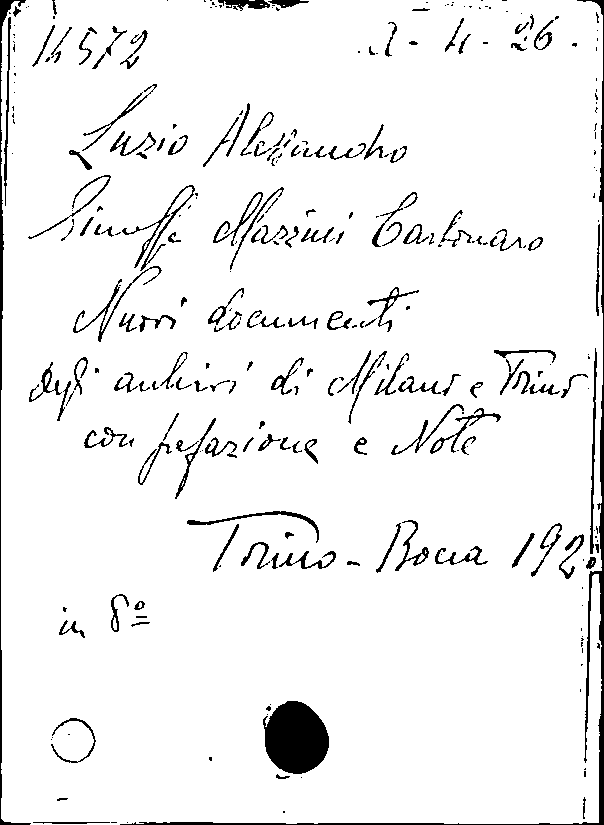 14572
2-4-26.
Luzio Alessandro
Giuseppe Mazzini Carbonaro
Nuovi documenti
degli archivi di Milano e Torino
con prefazione e Note
Torino - Bocca 1920
in 8º